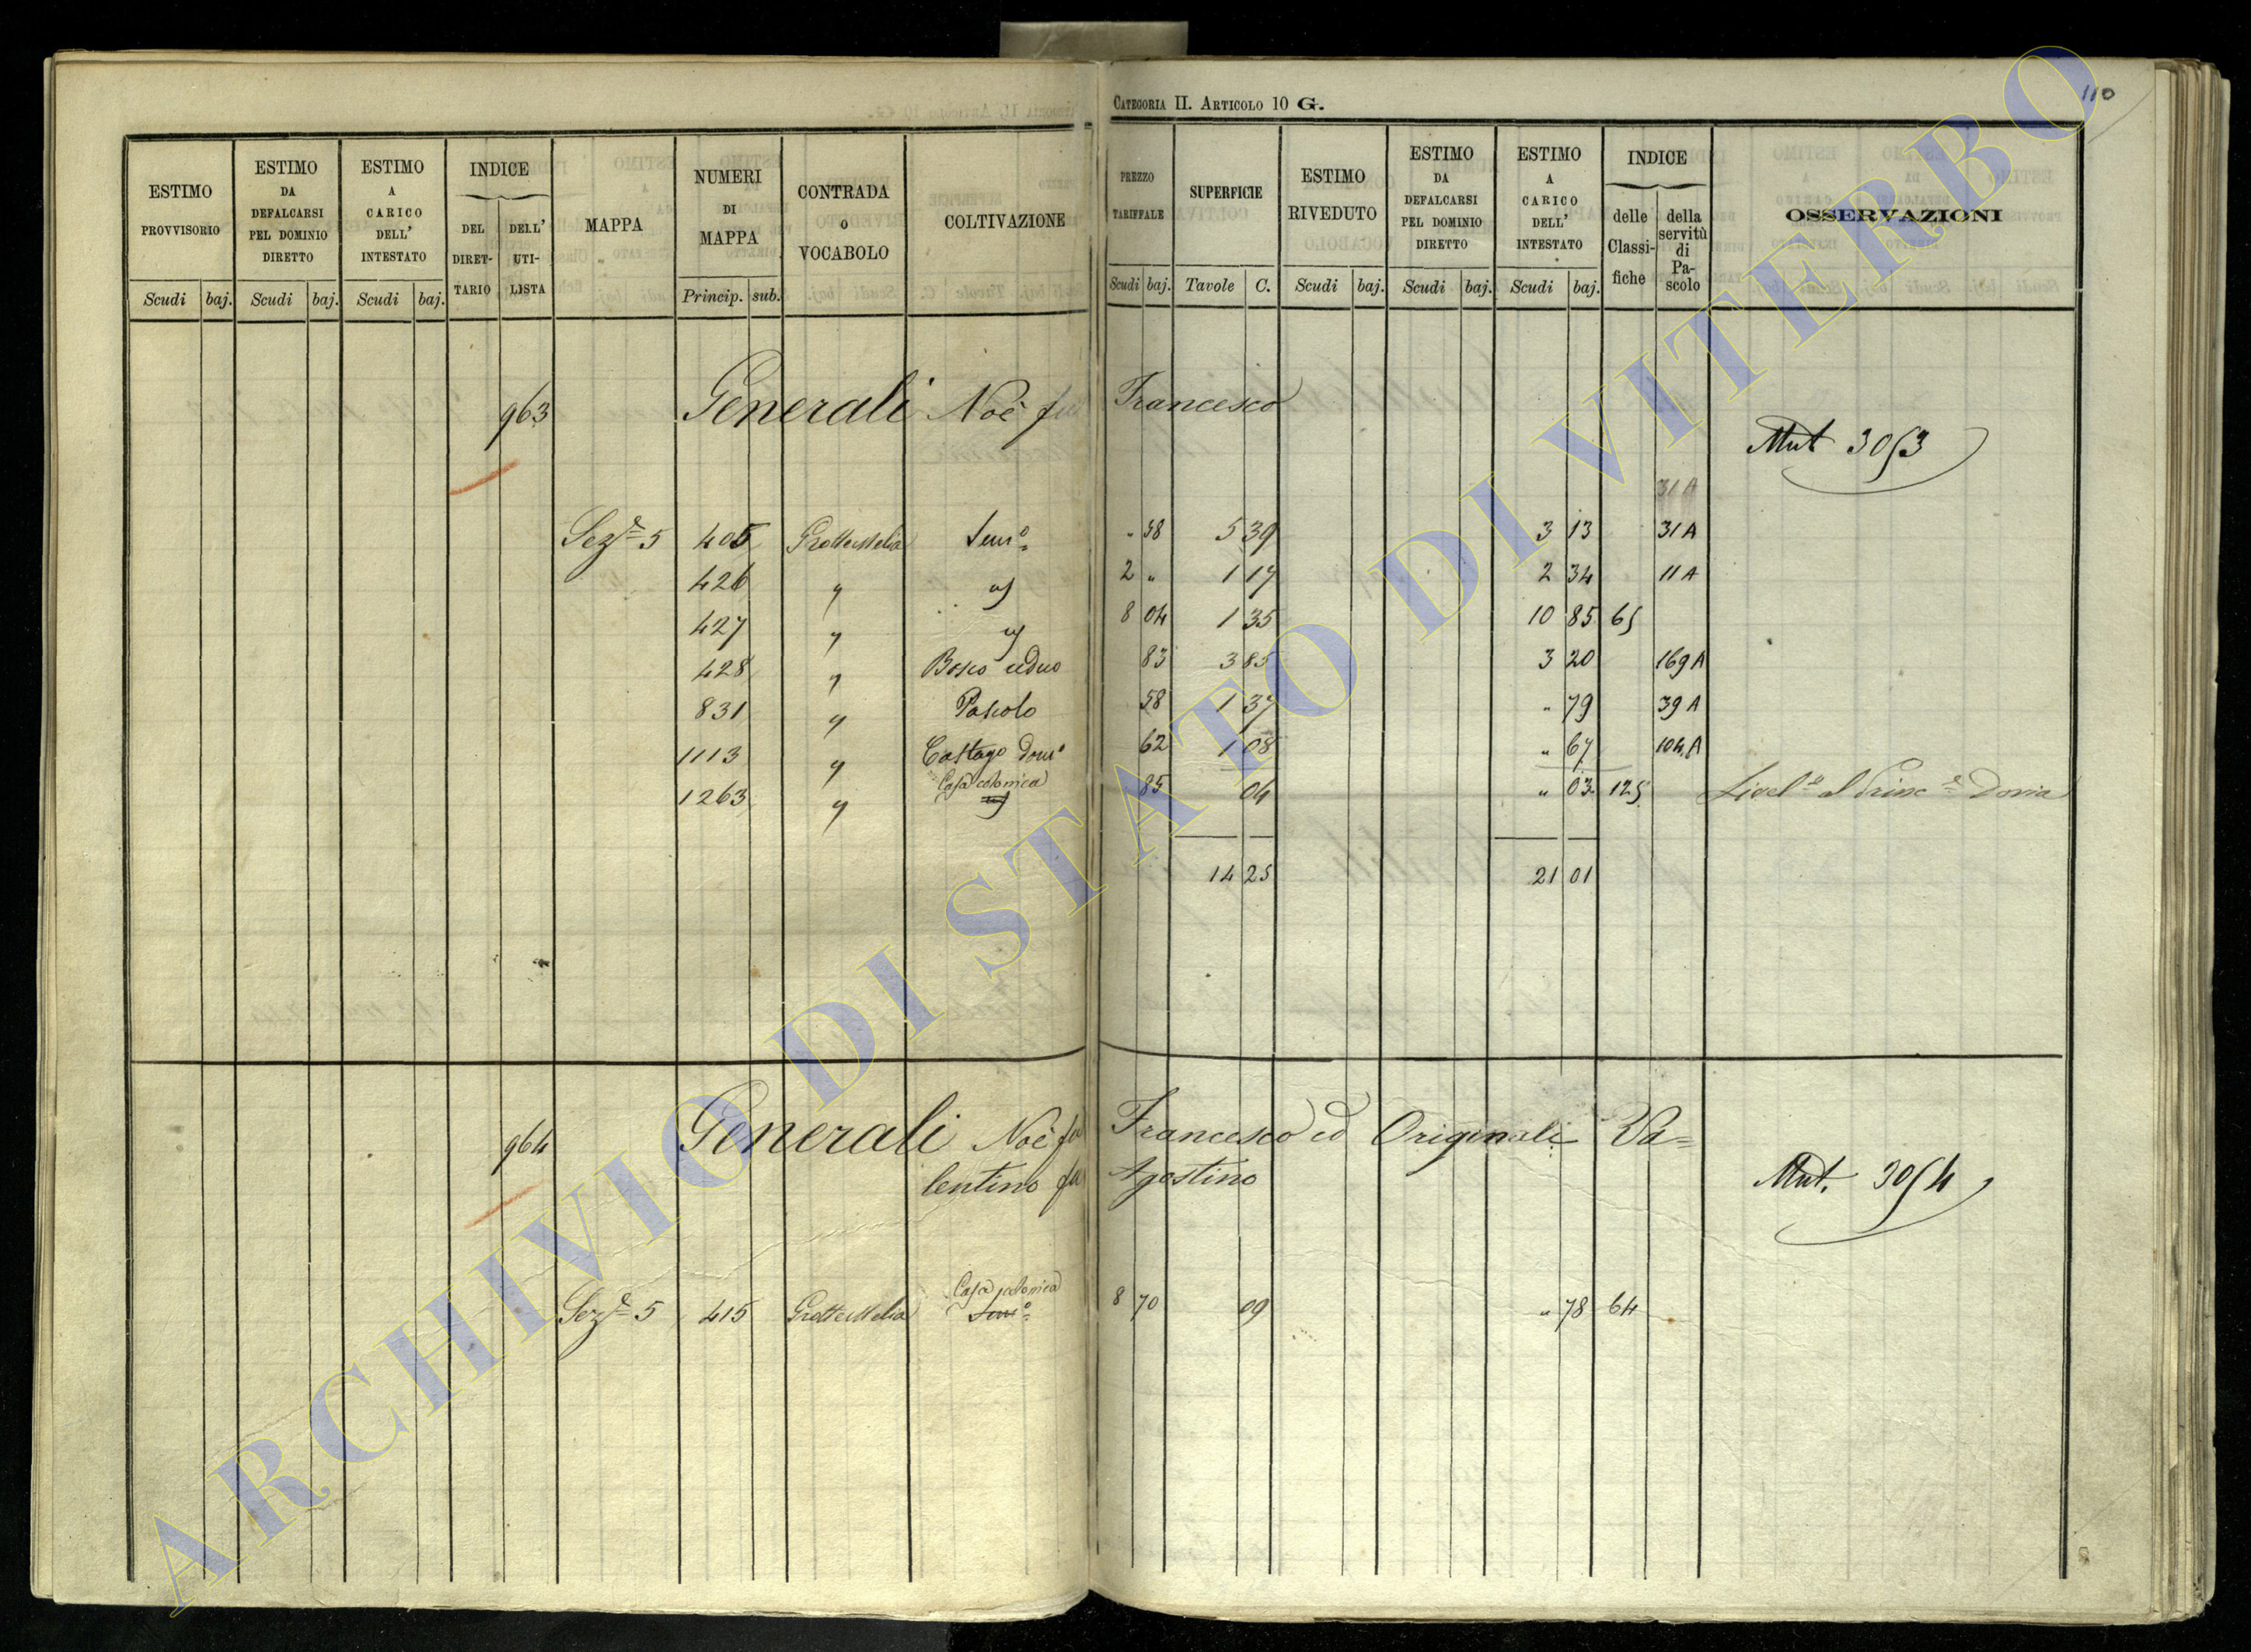 CATEGORIA II. ARTICOLO 10 G.
110
ESTIMO PROVVISORIO
ESTIMO DA DEFALCARSI PEL DOMINIO DIRETTO
ESTIMO A CARICO DELL' INTESTATO
INDICE
DEL DIRET-TARIO
DELL' UTI-LISTA
MAPPA
NUMERI DI MAPPA
CONTRADA o VOCABOLO
COLTIVAZIONE
PREZZO TARIFFALE
SUPERFICIE
ESTIMO RIVEDUTO
ESTIMO DA DEFALCARSI PEL DOMINIO DIRETTO
ESTIMO A CARICO DELL' INTESTATO
INDICE
delle Classi-fiche
della servitù di Pa-scolo
OSSERVAZIONI
Scudi baj. Scudi baj. Scudi baj. Princip. sub. Scudi baj. Tavole C. Scudi baj. Scudi baj. Scudi baj.
963 Generali Noè fu Francesco
Mut 3053
31 A
Sez.e 5 405 GrotteMelia Sem.o " 58 5 39 3 13 31 A
426 " " 2 " 1 17 2 34 11 A
427 " " 8 04 1 35 10 85 65
428 " Bosco ceduo 83 3 85 3 20 169 A
831 " Pascolo 58 1 37 " 79 39 A
1113 " Castag.o dom.o 62 1 08 " 67 104 A
1263 " Casa colonica 85 04 " 03 125 Livel.o al Princ.e Doria
14 25 21 01
964 Generali Noè fu Francesco ed Originali Va=
lentino fu Agostino
Mut. 3054
Sez.e 5 415 GrotteMelia Casa colonica Sem.o 8 70 09 " 78 64
ARCHIVIO DI STATO DI VITERBO